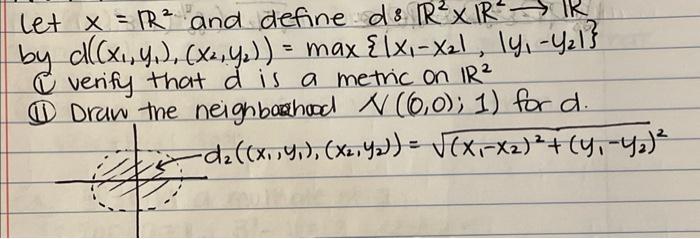 Let x = ℝ² and define d: ℝ² × ℝ² → ℝ
by d((x₁,y₁), (x₂,y₂)) = max {|x₁-x₂|, |y₁-y₂|}
(i) verify that d is a metric on ℝ²
(ii) Draw the neighborhood N((0,0); 1) for d.
d₂((x₁,y₁), (x₂,y₂)) = √(x₁-x₂)² + (y₁-y₂)²